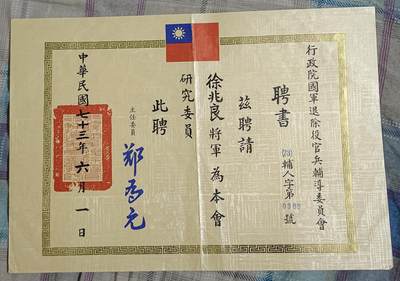 行政院國軍退除役官兵輔導委員會
聘書
(73)輔人字第0305號
茲聘請
徐兆良將軍為本會
研究委員
此聘
主任委員
鄭為元
中華民國七十三年六月一日